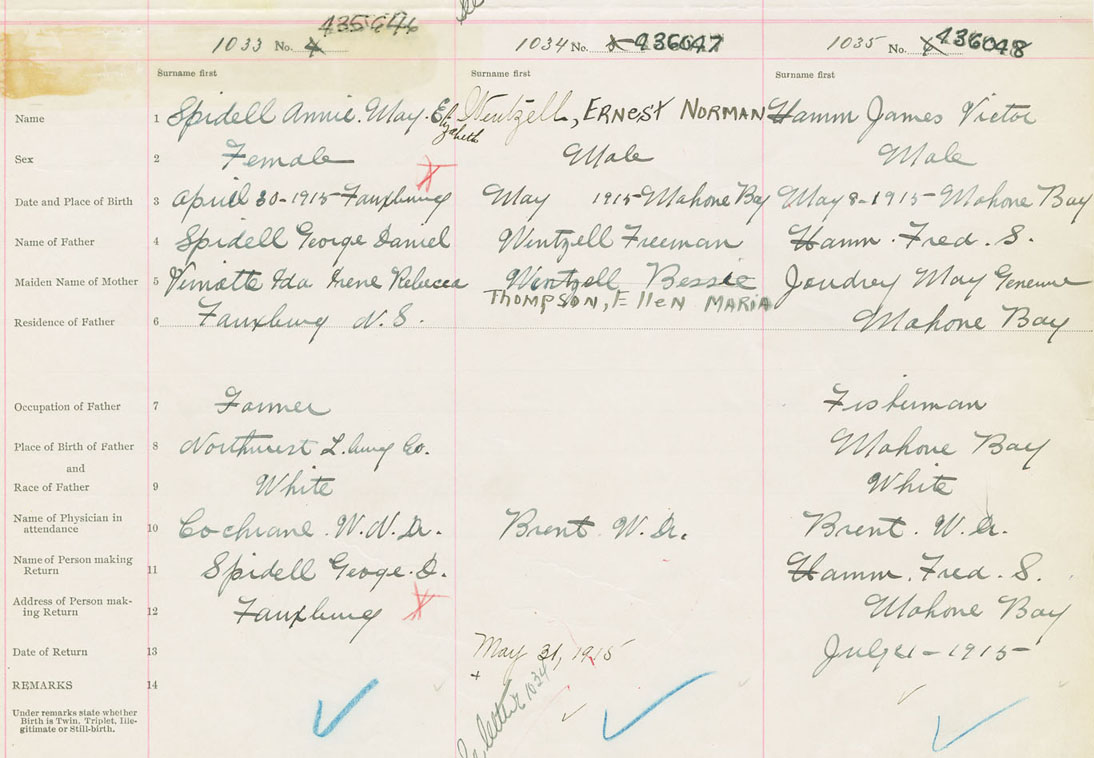 1033 No. 4 435646 1034 No. 5 436047 1035 No. 6 436048
Surname first Surname first Surname first
Name 1 Spidell Annie. May. Elizabeth Wentzell, ERNEST NORMAN Hamm James Victor
Sex 2 Female Male Male
Date and Place of Birth 3 April 30-1915-Fauxburg May 1915-Mahone Bay May 8-1915-Mahone Bay
Name of Father 4 Spidell George Daniel Wentzell Freeman Hamm. Fred. S.
Maiden Name of Mother 5 Ida Irene Rebecca Wentzell Bessie Joudrey May
THOMPSON, Ellen MARIA
Residence of Father 6 Fauxburg N.S. Mahone Bay
Occupation of Father 7 Farmer Fisherman
Place of Birth of Father 8 Northwest L.burg Co. Mahone Bay
and
Race of Father 9 White White
Name of Physician in
attendance 10 Cochrane. W. N. Dr. Brent. W. Dr. Brent. W. Dr.
Name of Person making
Return 11 Spidell Geoge. D. Hamm. Fred. S.
Address of Person mak-
ing Return 12 Fauxburg Mahone Bay
Date of Return 13 May 31, 1915 July 21-1915-
REMARKS 14
letter 1034
Under remarks state whether
Birth is Twin, Triplet, Ille-
gitimate or Still-birth.